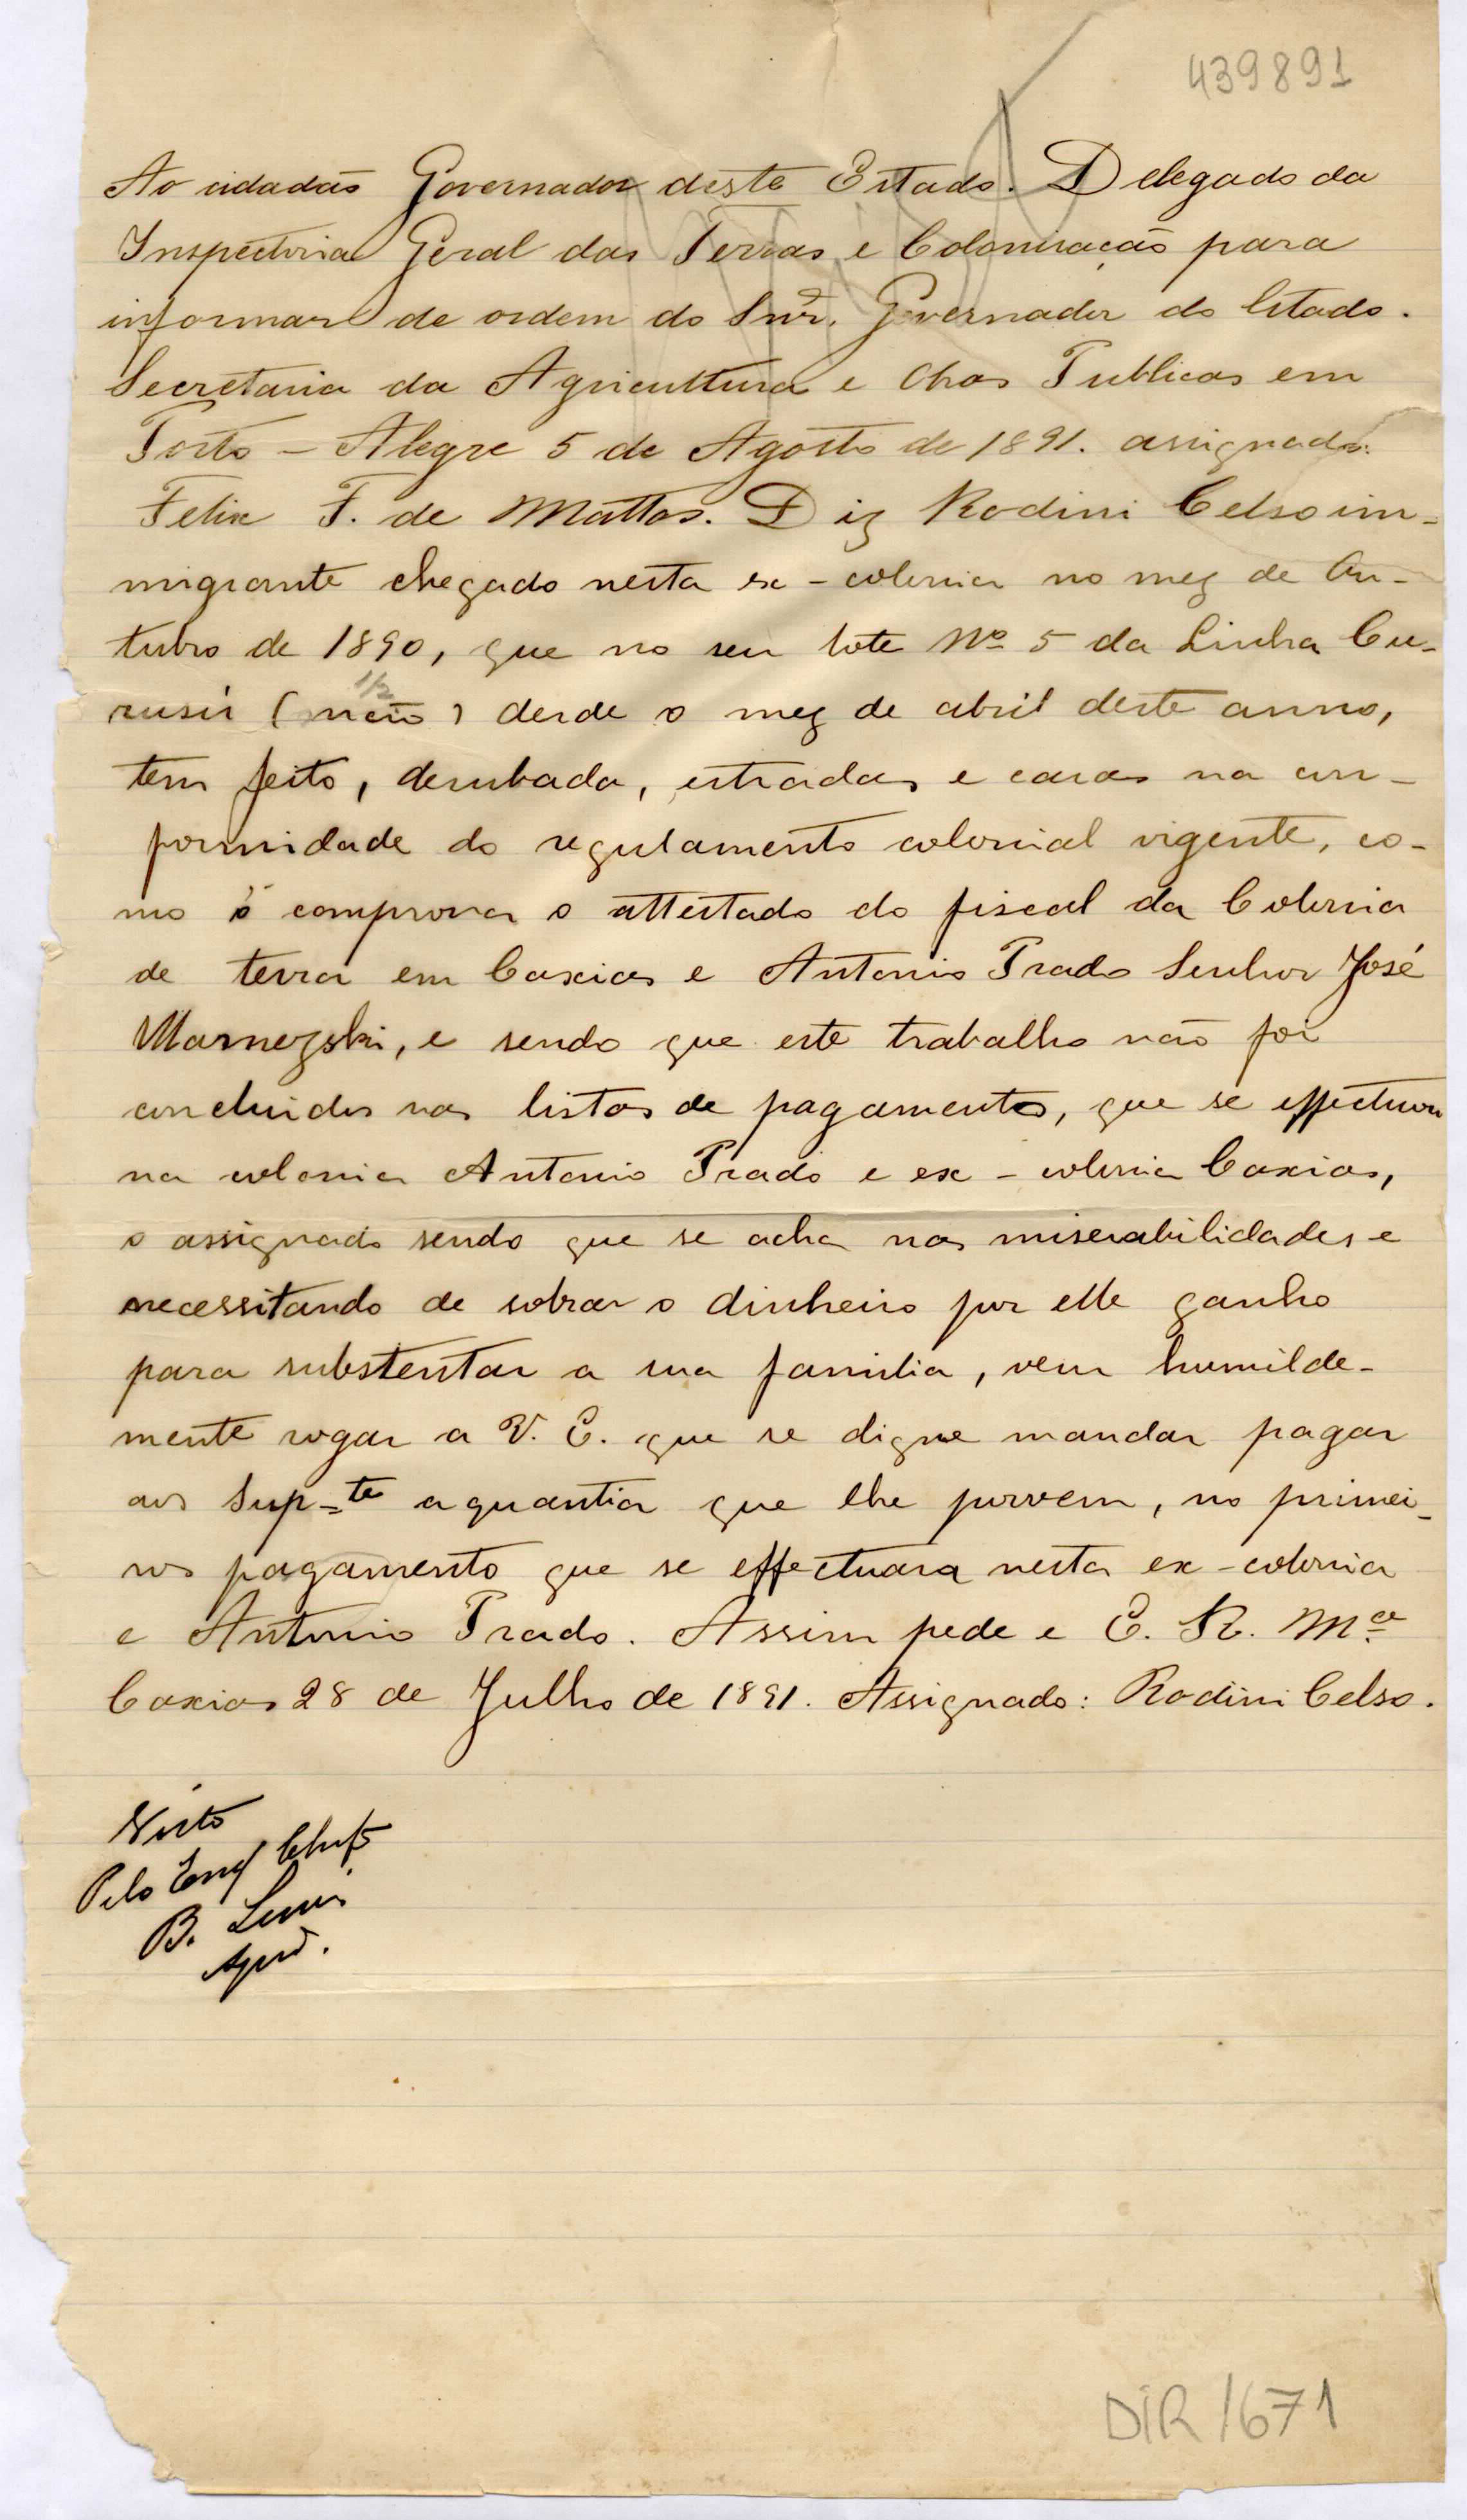 439891
Ao cidadão Governador deste Estado. Delegado da
Inspectoria Geral das Terras e Colonisação para
informar de ordem do Snr. Governador do Estado.
Secretaria da Agricultura e Obras Publicas em
Porto - Alegre 5 de Agosto de 1891. assignado:
Felix F. de Mattos. Diz Rodini Celso im-
migrante chegado nesta ex - colonia no mez de Ou-
tubro de 1890, que no seu lote Nº 5 da Linha Cu-
rusú (meio) 1/2 desde o mez de abril deste anno,
tem feito, derubada, estradas e casas na con-
formidade do regulamento colonial vigente, co-
mo o comprova o attestado do fiscal da Colonia
de terra em Caxias e Antonio Prado Senhor José
e sendo que este trabalho não foi
concluido nas listas de pagamentos, que se effectuou
na colonia Antonio Prado e ex - colonia Caxias,
o assignado sendo que se acha nas miserabilidades e
necessitando de cobrar o dinheiro por elle ganho
para substentar a sua familia, vem humilde-
mente rogar a V. E. que se digne mandar pagar
aos Sup-te a quantia que lhe provem, no primei-
ros pagamento que se effectuara nesta ex - colonia
e Antonio Prado. Assim pede e E. R. Mce
Caxias 28 de Julho de 1891. Assignado: Rodini Celso.
Visto
Pelo Eng Chefe
B.
Ajud.
DIR 1671